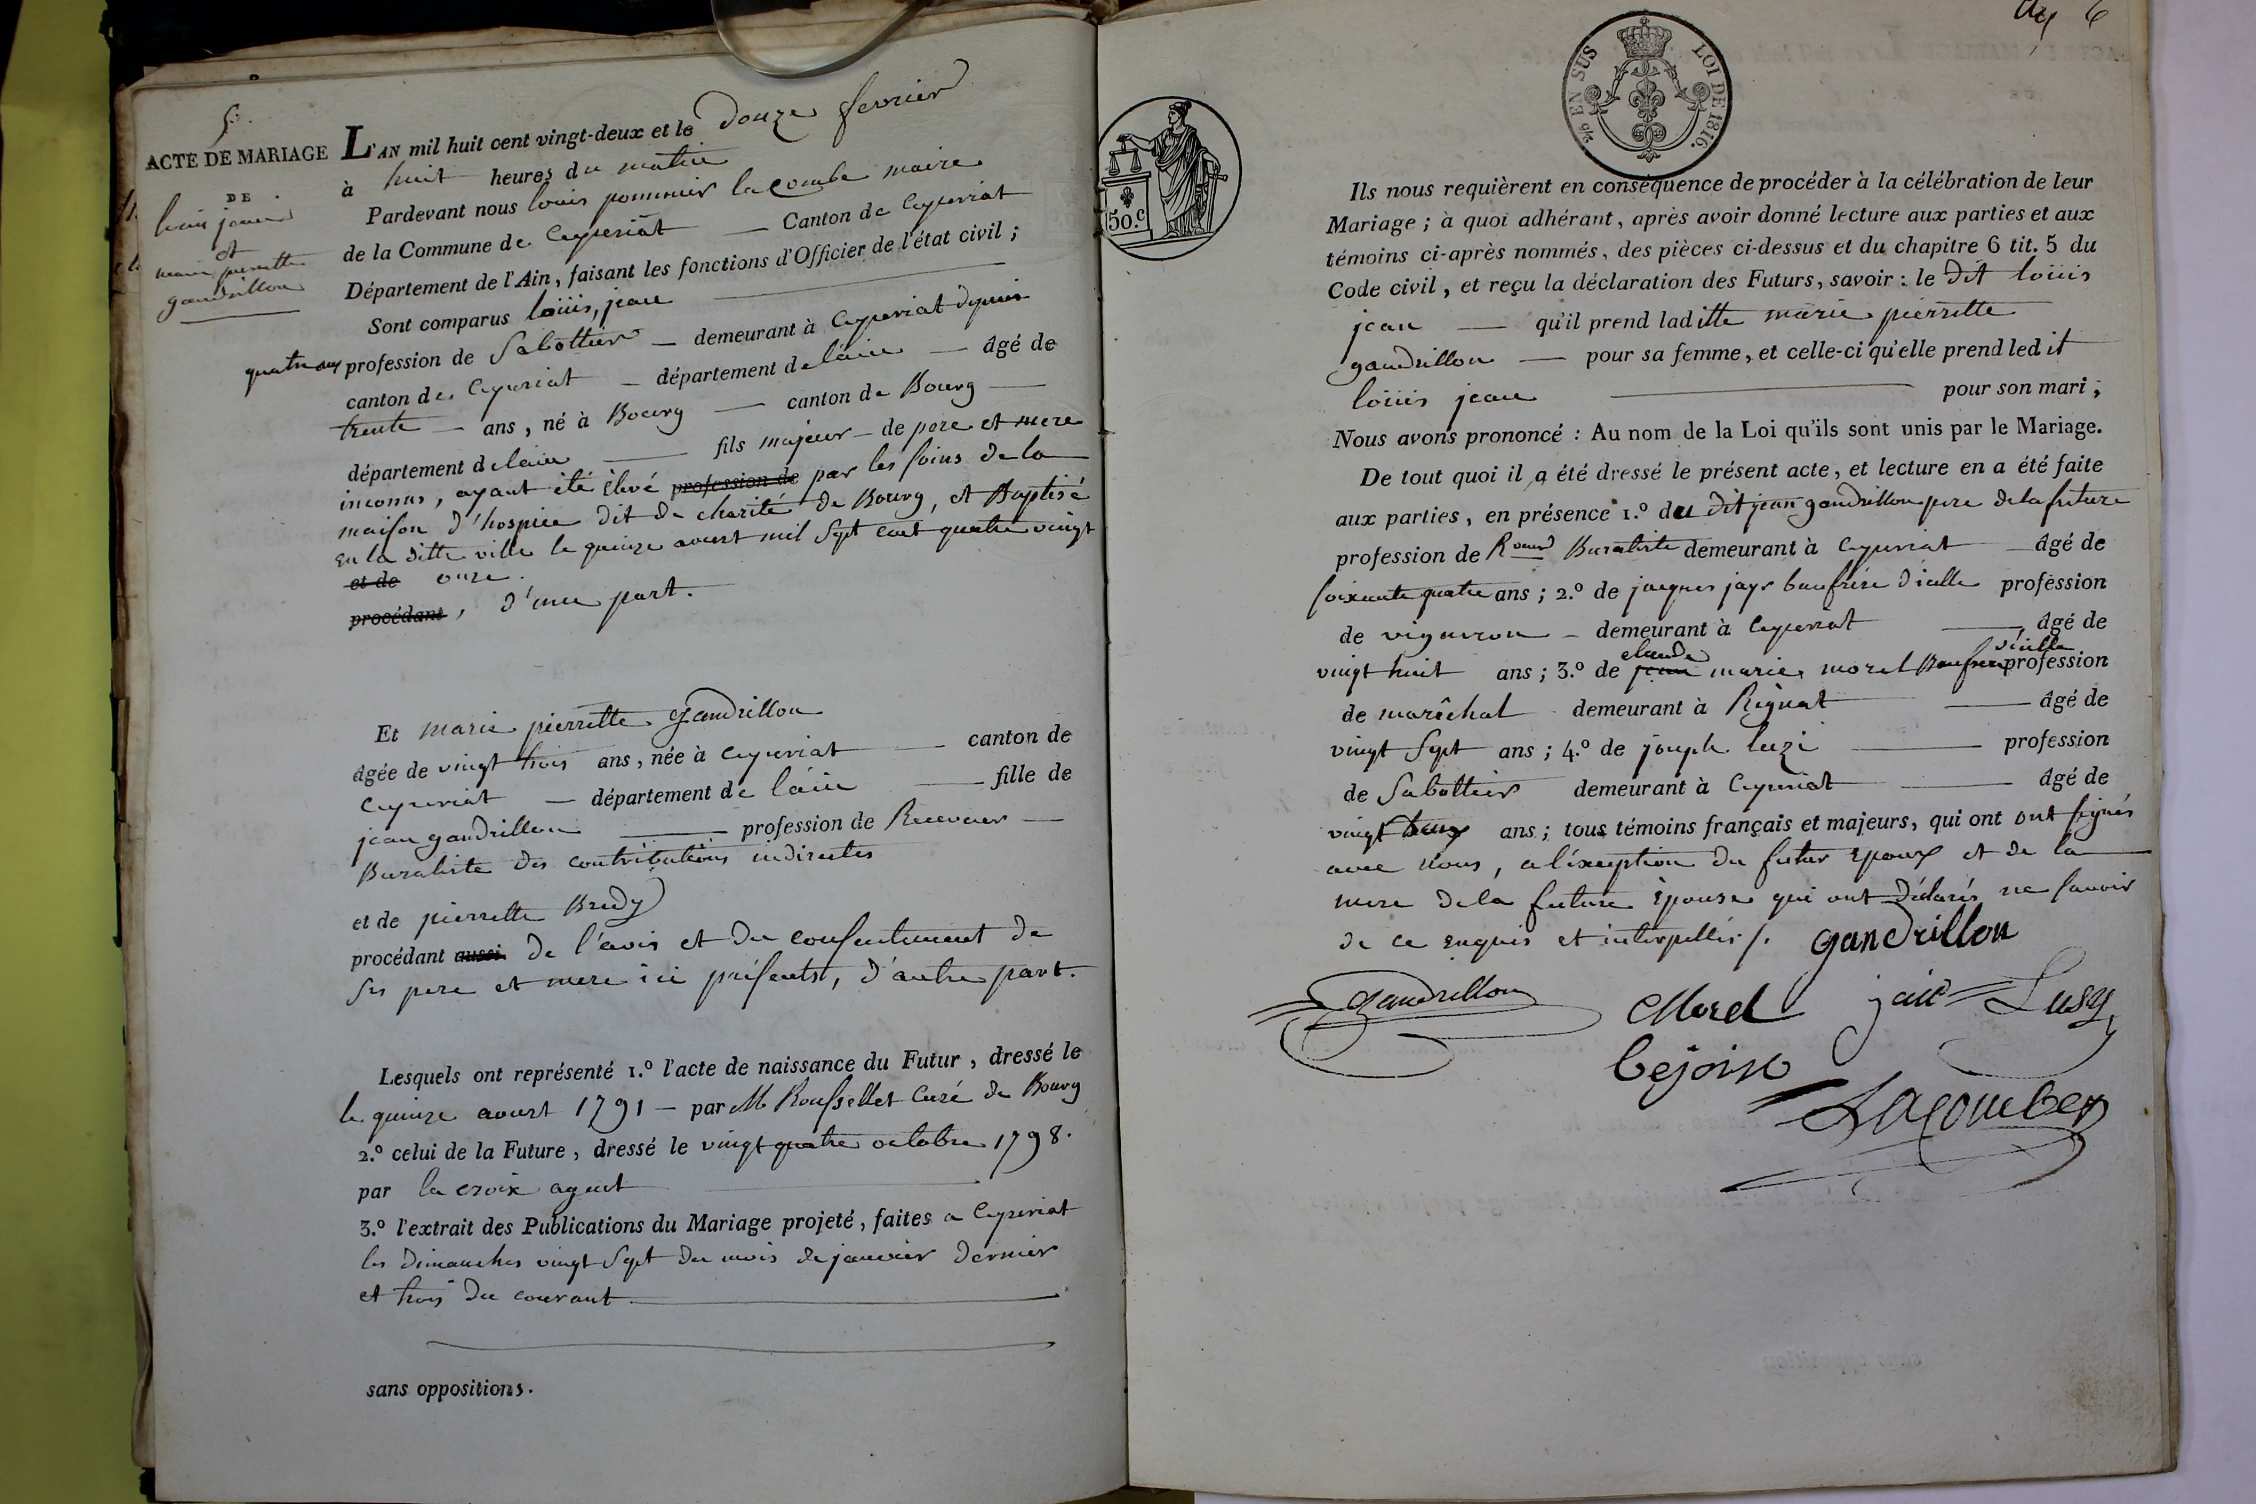 5.
ACTE DE MARIAGE
DE
louis jean
et
marie pierrette
gandrillon
L'AN mil huit cent vingt-deux et le douze fevrier
à huit heures du matin
Pardevant nous louis pommier lacombe maire
de la Commune de Ceyzeriat — Canton de Ceyzeriat
Département de l'Ain, faisant les fonctions d'Officier de l'état civil ;
Sont comparus loüis, jean
profession de Sabottier — demeurant à Ceyzeriat depuis
quatre ans
canton de Ceyzeriat — département de l'ain — âgé de
trente — ans, né à Bourg — canton de Bourg —
département de l'ain — fils majeur — de pere et mere
inconnus, ayant été élevé profession de par les soins de la
maison d'hospice dit de charité de Bourg, et Baptisé
en la ditte ville le quinze aoust mil sept cent quatre vingt
et de onze.
procédant, d'une part.
Et marie pierrette gandrillon
âgée de vingt trois ans, née à Ceyzeriat — canton de
Ceyzeriat — département de l'ain — fille de
jean gandrillon — profession de Receveur —
Buraliste des contributions indirectes
et de pierrette Bredy
procédant aussi de l'avis et du consentement de
ses pere et mere ici présents, d'autre part.
Lesquels ont représenté 1.º l'acte de naissance du Futur, dressé le
le quinze aoust 1791 — par M Roussellet Curé de Bourg
2.º celui de la Future, dressé le vingt quatre octobre 1798.
par la croix agent
3.º l'extrait des Publications du Mariage projeté, faites a Ceyzeriat
les dimanches vingt sept du mois de janvier dernier
et trois du courant
sans oppositions.
6
EN SUS
LOI DE 1816.
50.c
Ils nous requièrent en conséquence de procéder à la célébration de leur
Mariage ; à quoi adhérant, après avoir donné lecture aux parties et aux
témoins ci-après nommés, des pièces ci-dessus et du chapitre 6 tit. 5 du
Code civil, et reçu la déclaration des Futurs, savoir : le dit loüis
jean — qu'il prend laditte marie pierrette
gandrillon — pour sa femme, et celle-ci qu'elle prend ledit
loüis jean — pour son mari ;
Nous avons prononcé : Au nom de la Loi qu'ils sont unis par le Mariage.
De tout quoi il a été dressé le présent acte, et lecture en a été faite
aux parties, en présence 1.º du dit jean gandrillon pere de la future
profession de Rceveur Buraliste demeurant à Ceyzeriat — âgé de
soixante quatre ans ; 2.º de jacques jayr beaufrère d'icelle profession
de vigneron — demeurant à Ceyzeriat — âgé de
vingt huit ans ; 3.º de jean claude marie morel Beaufrere d'icelle profession
de maréchal demeurant à Rignat — âgé de
vingt sept ans ; 4.º de joseph luzi — profession
de Sabottier demeurant à Ceyzeriat — âgé de
vingt ans ; tous témoins français et majeurs, qui ont ont signés
avec nous, a l'éxeception du futur Epoux et de la
mere de la future Epouse qui ont déclarés ne savoir
de ce enquis et interpellés /. gandrillon
gandrillon
Morel
jair
Lusy
Lacombe